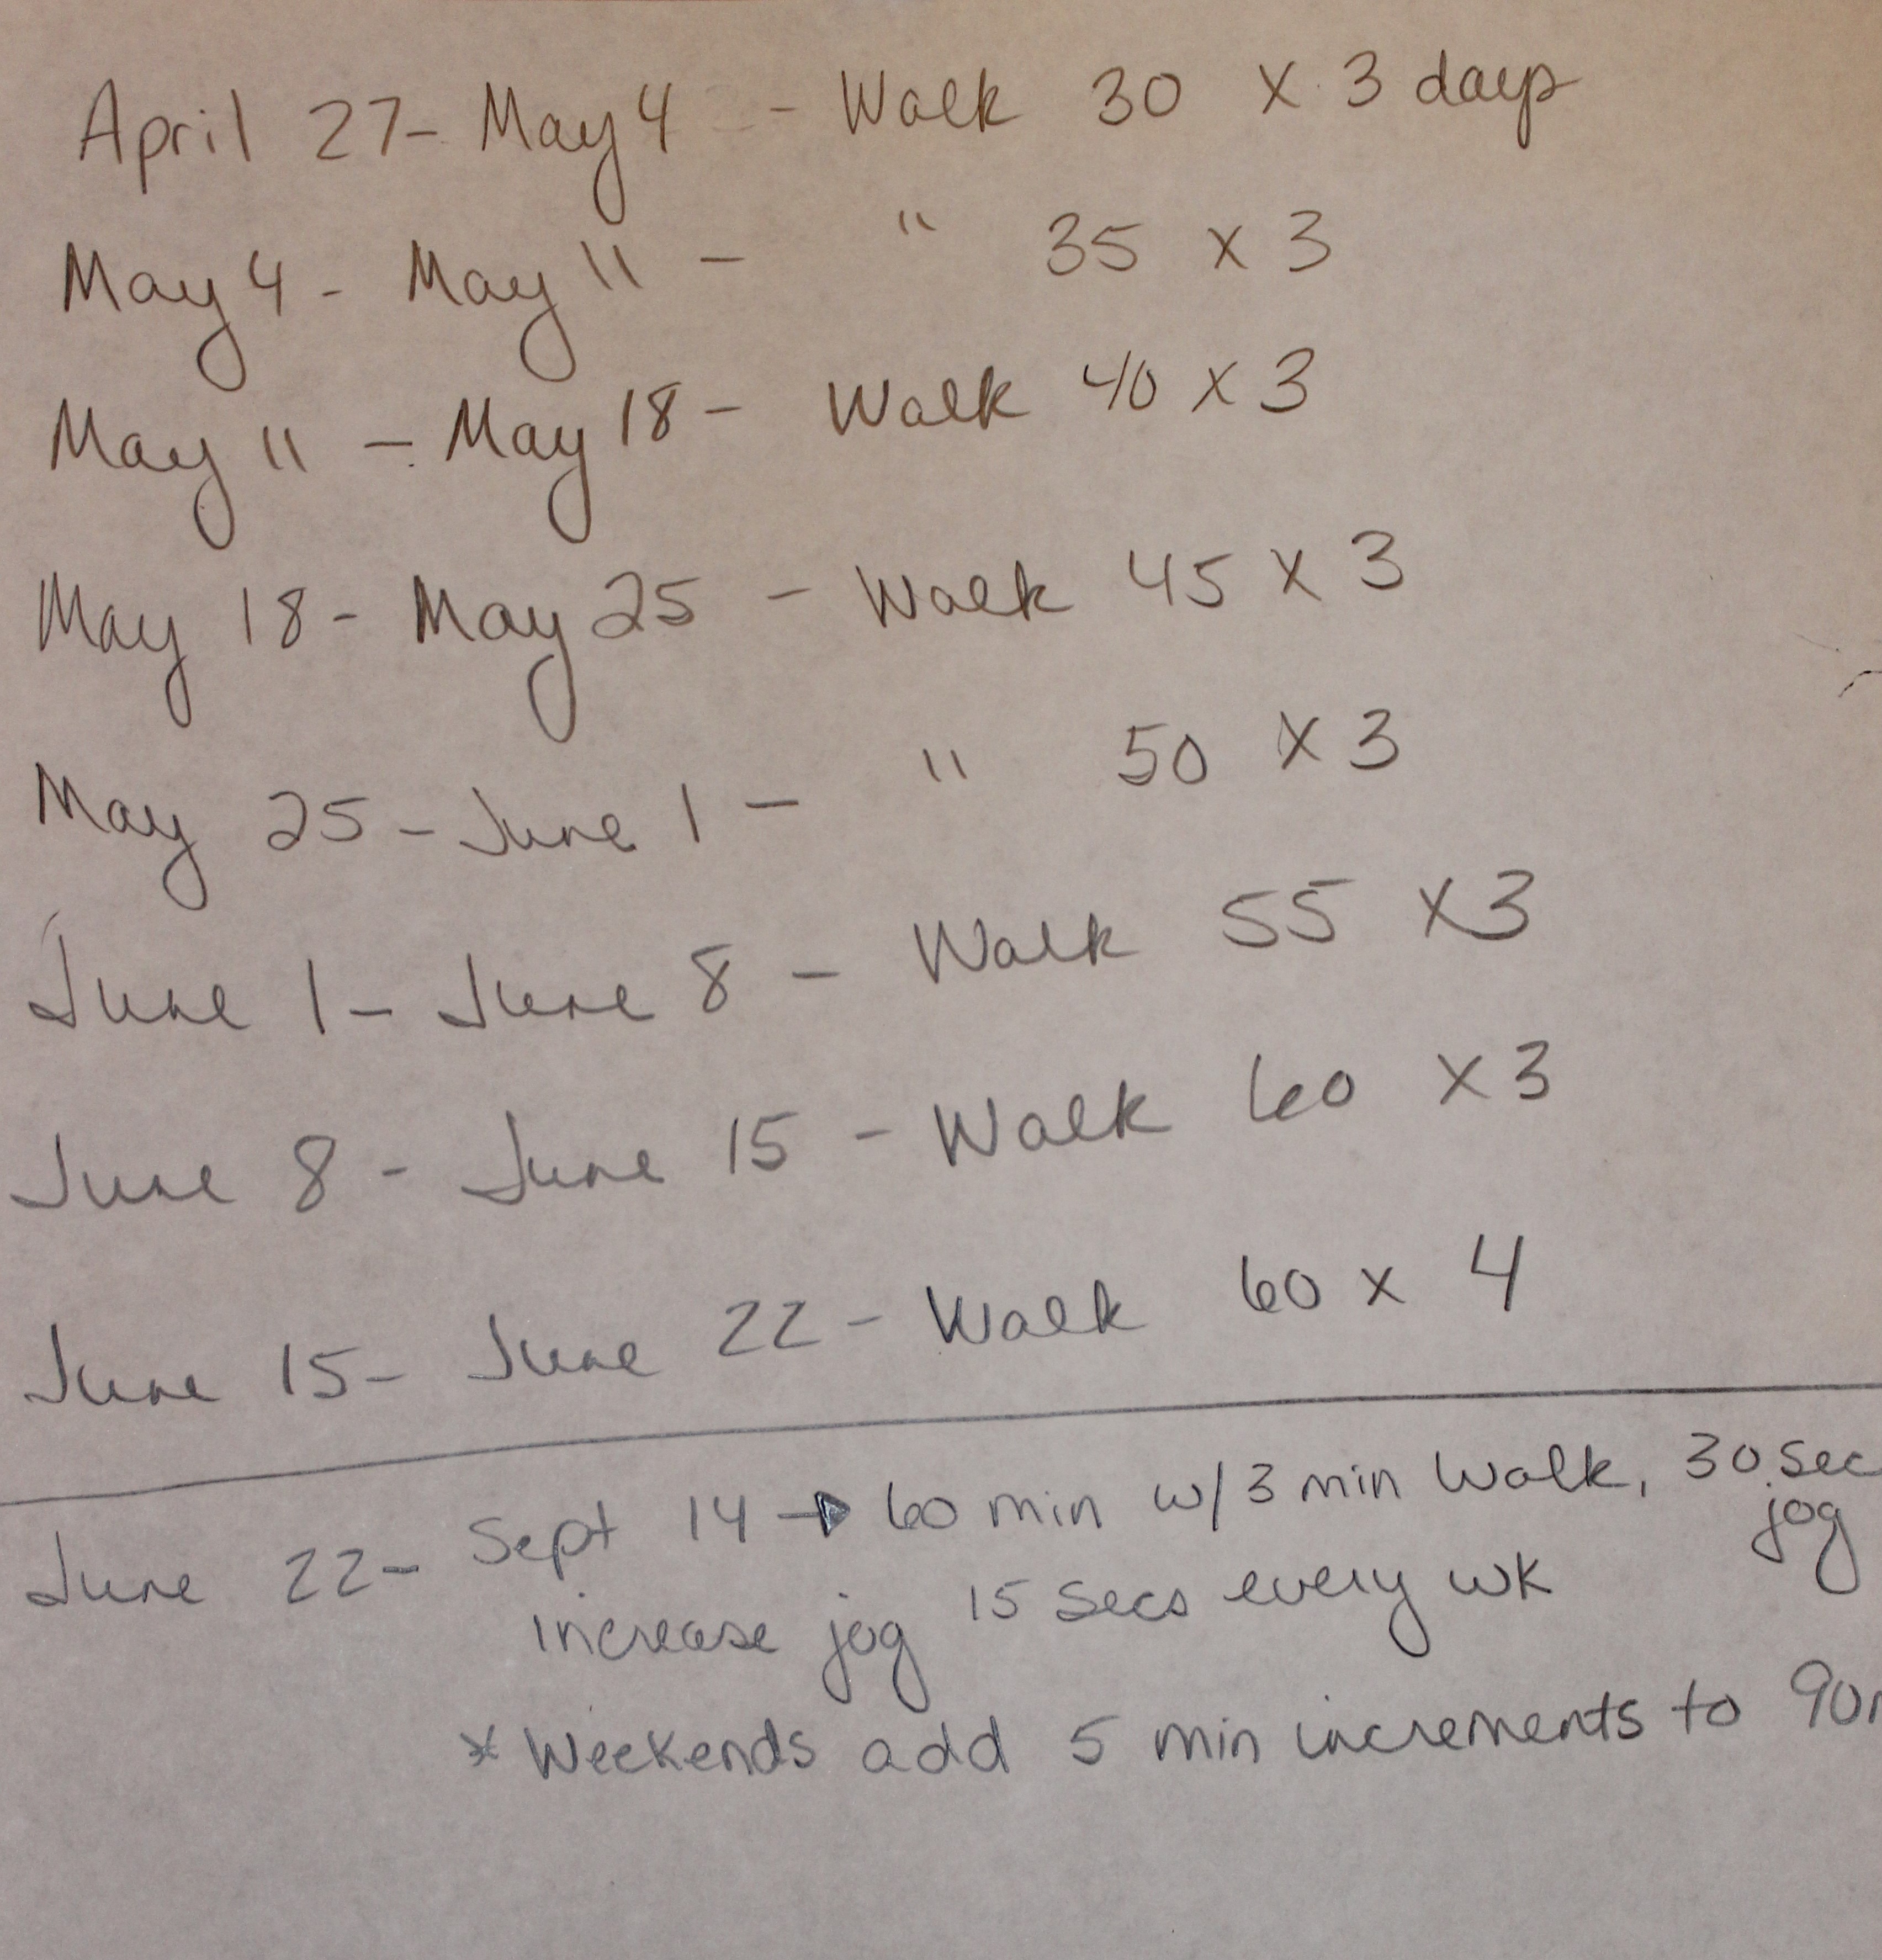 April 27 - May 4 - Walk 30 x 3 days
May 4 - May 11 - " 35 x 3
May 11 - May 18 - Walk 40 x 3
May 18 - May 25 - Walk 45 x 3
May 25 - June 1 - " 50 x 3
June 1 - June 8 - Walk 55 x 3
June 8 - June 15 - Walk 60 x 3
June 15 - June 22 - Walk 60 x 4
June 22 - Sept 14 → 60 min w/ 3 min Walk, 30 sec
jog
increase jog 15 secs every wk
* Weekends add 5 min increments to 90